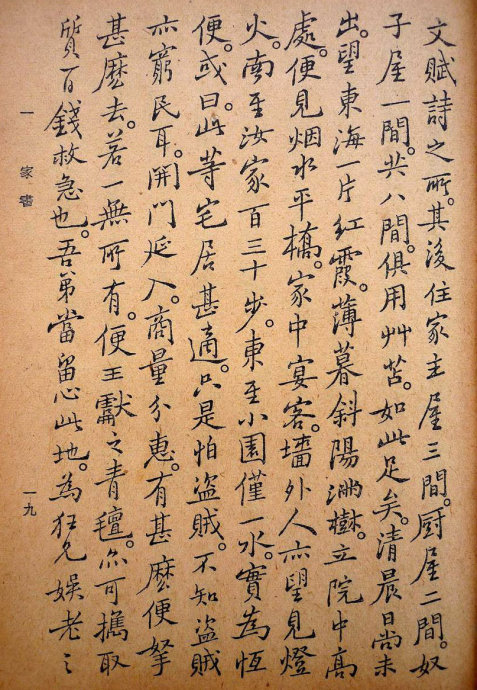 文賦詩之所。其後住家主屋三間。廚屋二間。奴
子屋一間。共八間。俱用艸苫。如此足矣。清晨日尚未
出。望東海一片紅霞。薄暮斜陽滿樹。立院中高
處。便見烟水平橋。家中宴客。墻外人亦望見燈
火。南至汝家百三十步。東至小園僅一水。實為恆
便。或曰。此等宅居甚適。只是怕盜賊。不知盜賊
亦窮民耳。開門延入。商量分惠。有甚麼便拏
甚麼去。若一無所有。便王獻之青氈。亦可攜取
質百錢救急也。吾弟當留心此地。為狂兄娛老之
一 家書
一九